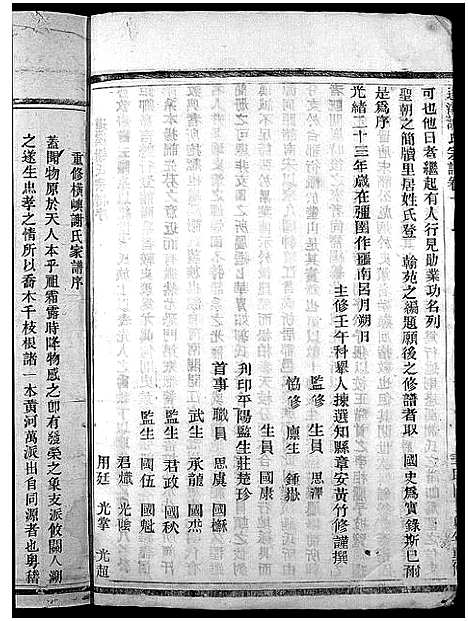 可也他日者繼起有人行見勛業功名列
聖朝之簡牘里居姓氏登 翰苑之編題願後之修譜者取 國史爲實錄斯已爾
是爲序
光緒二十三年歲在彊圉作噩南呂月朔日
主修壬午科舉人揀選知縣章安黃竹修謹撰
監修 生員 思澤
協修 廩生 鍾嶽
生員 國康
刋印平陽監生莊楚珍
首事 職員 思虞 國櫪
武生 承龍 國杰
監生 君政 國秋
監生 國伍 國魁
君熾 光陰
用廷 光掌 光超
重修橫嶼謝氏家譜序
蓋聞物原於天人本乎祖霜露時降物感之卽有發榮之象支派攸關人溯
之遂生忠孝之情所以喬木千枝根諸一本黃河萬派出自同源者也粤稽